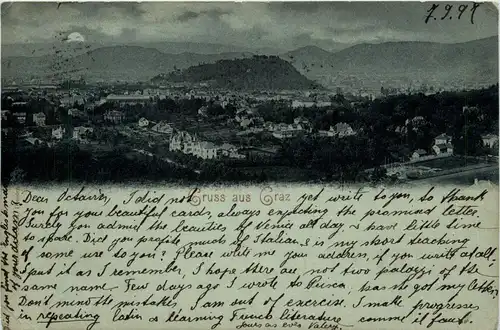 7.9.97
Gruss aus Graz
Dear Octavio, I did not yet write to you, to thank
you for your beautiful cards, always expecting the promised letter.
Surely you admire the beauties of Venice all day, & have little time
to spare. Did you profite much of Italian, & is my short teaching
of some use to you? Please write me your address, if you write at all.
I put it as I remember, I hope there are not two palazzi of the
same name. Few days ago I wrote to has she got my letter
Don't mind the mistakes I am out of exercise. I make progress
in repeating latin & learning French literature comme il faut.
Yours as ever Valery.